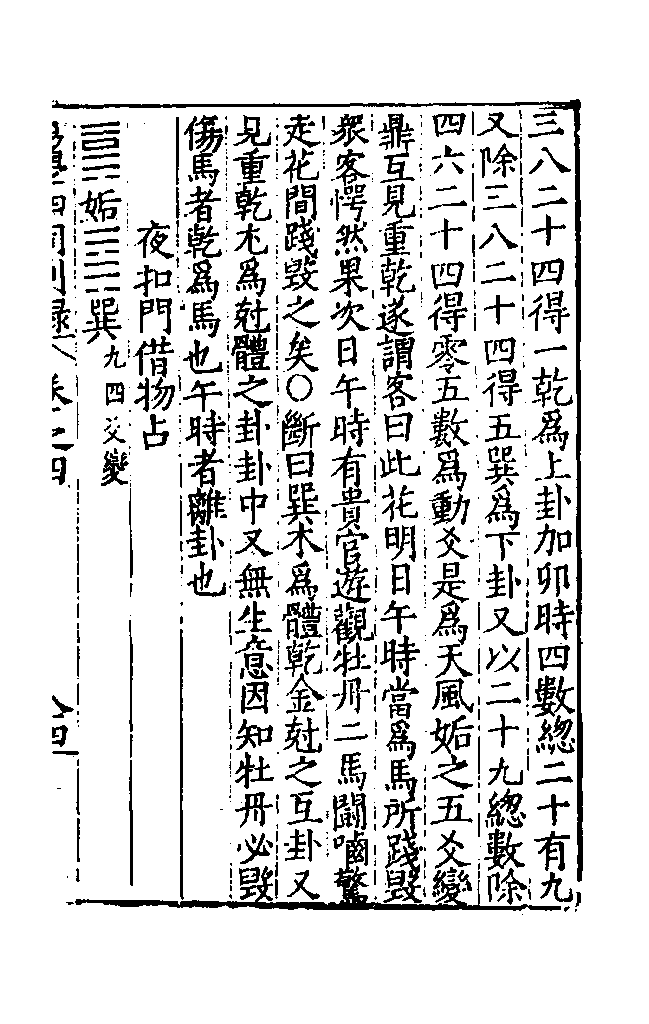 三八二十四得一乾爲上卦加卯時四數總二十有九
又除三八二十四得五巽爲下卦又以二十九總數除
四六二十四得零五數爲動爻是爲天風姤之五爻變
鼎互見重乾遂謂客曰此花明日午時當爲馬所踐毀
衆客愕然果次日午時有貴官遊觀牡丹二馬鬭嚙驚
走花間踐毀之矣○斷曰巽木爲體乾金尅之互卦又
見重乾尢爲尅體之卦卦中又無生意因知牡丹必毀
傷馬者乾爲馬也午時者離卦也
夜扣門借物占
姤 巽九四爻變
四同別錄 卷之四